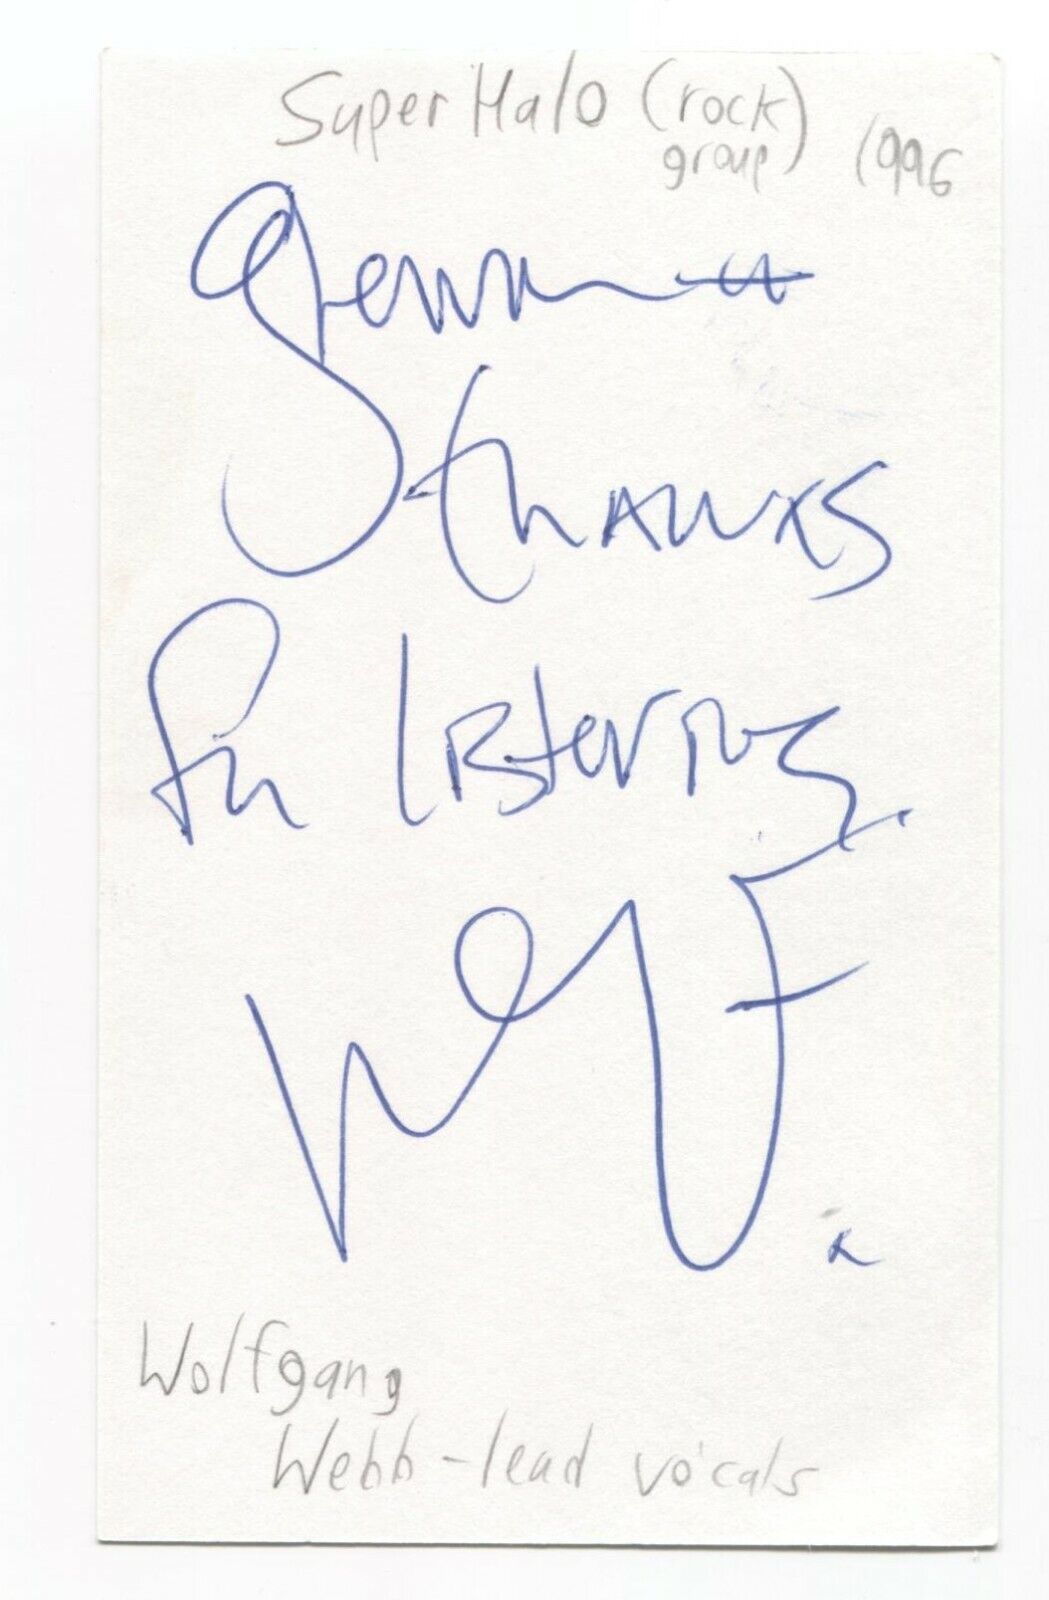 Super Halo (rock group) 1996
thanks
for listening.
Wolfgang
Webb - lead vocals